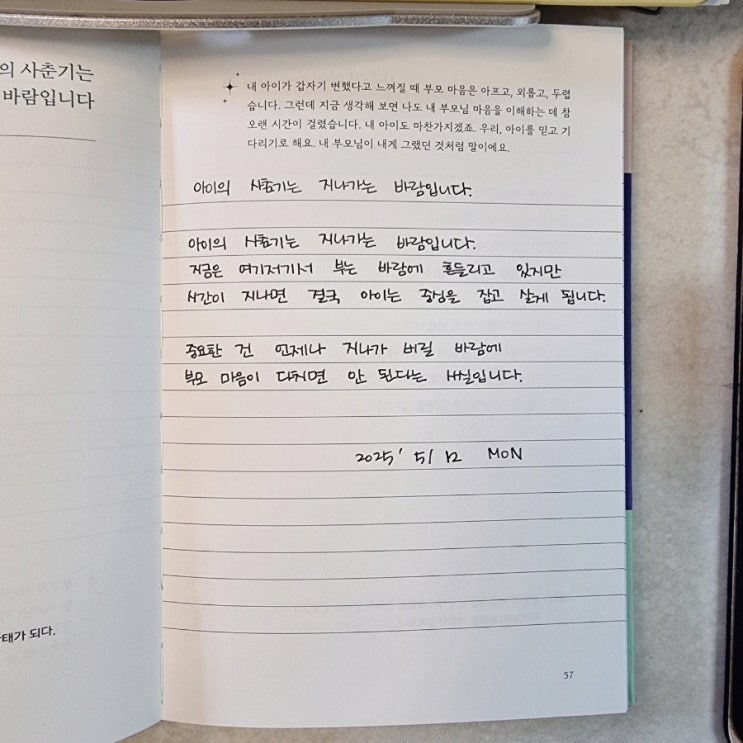 의 사춘기는
바람입니다
내 아이가 갑자기 변했다고 느껴질 때 부모 마음은 아프고, 외롭고, 두렵
습니다. 그런데 지금 생각해 보면 나도 내 부모님 마음을 이해하는 데 참
오랜 시간이 걸렸습니다. 내 아이도 마찬가지겠죠. 우리, 아이를 믿고 기
다리기로 해요. 내 부모님이 내게 그랬던 것처럼 말이에요.
아이의 사춘기는 지나가는 바람입니다.
아이의 사춘기는 지나가는 바람입니다.
지금은 여기저기서 부는 바람에 흔들리고 있지만
시간이 지나면 결국 아이는 중심을 잡고 살게 됩니다.
중요한 건 언제나 지나가 버릴 바람에
부모 마음이 다치면 안 된다는 사실입니다.
2025' 5/ 12 MON
태가 되다.
57